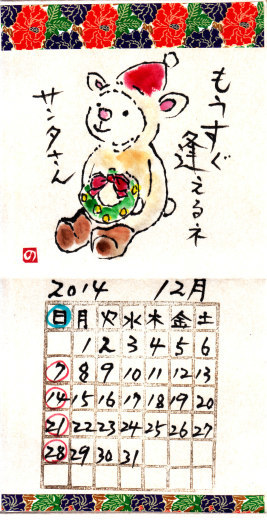 もうすぐ
逢えるネ
サンタさん
の
2014 12月
日 月 火 水 木 金 土
1 2 3 4 5 6
7 8 9 10 11 12 13
14 15 16 17 18 19 20
21 22 23 24 25 26 27
28 29 30 31